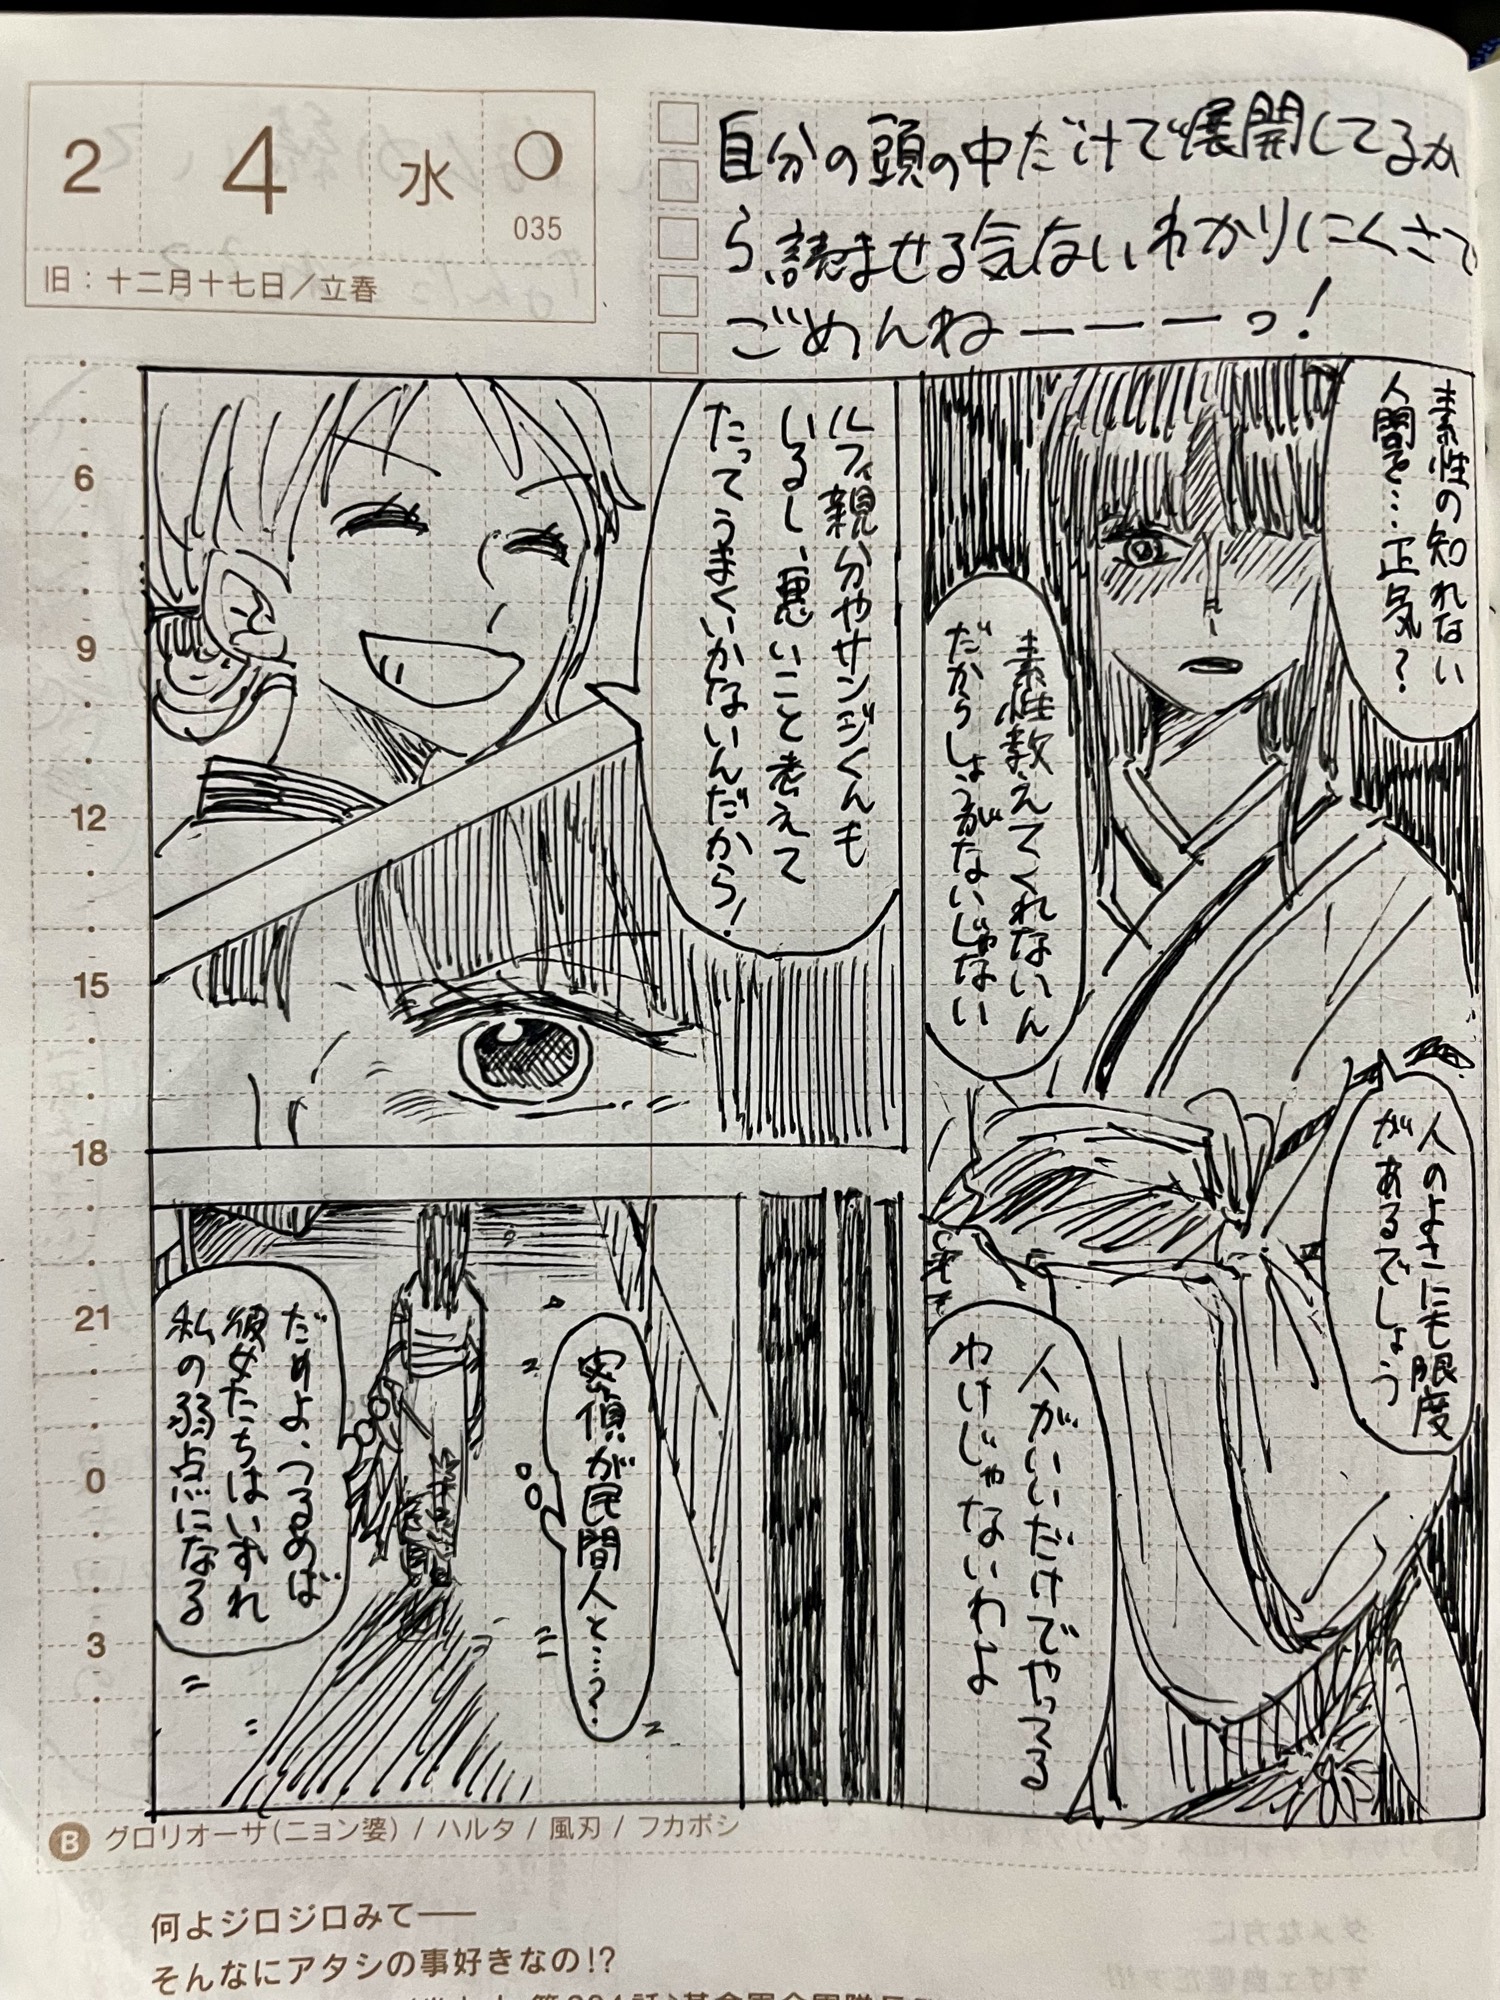 2 4 水
035
旧：十二月十七日／立春
自分の頭の中だけで展開してるか
ら、読ませる気ないわかりにくさで
ごめんねーーーっ！
素性の知れない
人間を…正気？
素性教えてくれないん
だからしょうがないじゃない
人のよさにも限度
があるでしょう
人がいいだけでやってる
わけじゃないわよ
ルフィ親分やサンジくんも
いるし、悪いこと考えて
たってうまくいかないんだから！
密偵が民間人と…？
だめよ、つるめば
彼女たちはいずれ
私の弱点になる
6
9
12
15
18
21
0
3
B グロリオーサ（ニョン婆）/ ハルタ / 風刃 / フカボシ
何よジロジロみて——
そんなにアタシの事好きなの!?